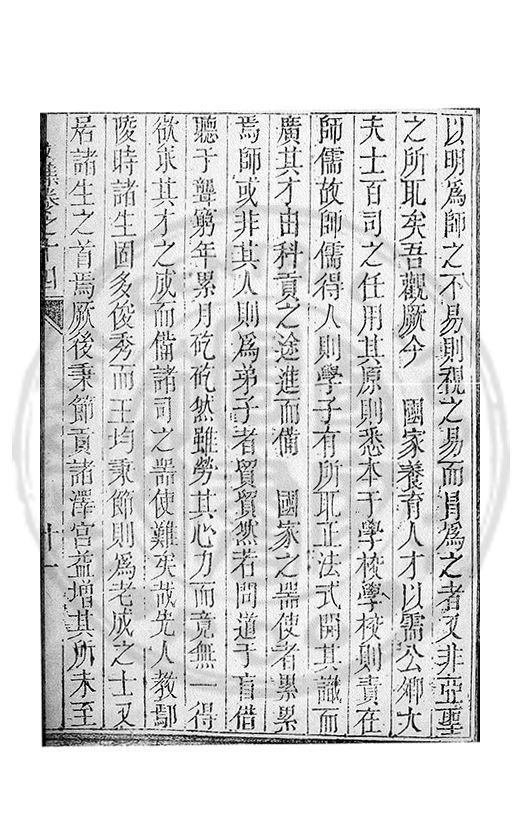 以明為師之不易則視之易而冐為之者又非亞聖
之所耻矣吾觀厥今　國家養育人才以需公卿大
夫士百司之任用其原則悉本于學校學校則責在
師儒故師儒得人則學子有所取正法式開其識而
廣其才由科貢之途進而備　國家之器使者累累
焉師或非其人則為弟子者貿貿然若問道于盲借
聽于聾窮年累月矻矻然雖勞其心力而竟無一得
欲求其才之成而備諸司之器使難矣哉先人教鄢
陵時諸生固多俊秀而王均秉節則為老成之士又
居諸生之首焉厥後秉節貢諸澤宮益增其所未至
集卷之十四
十一